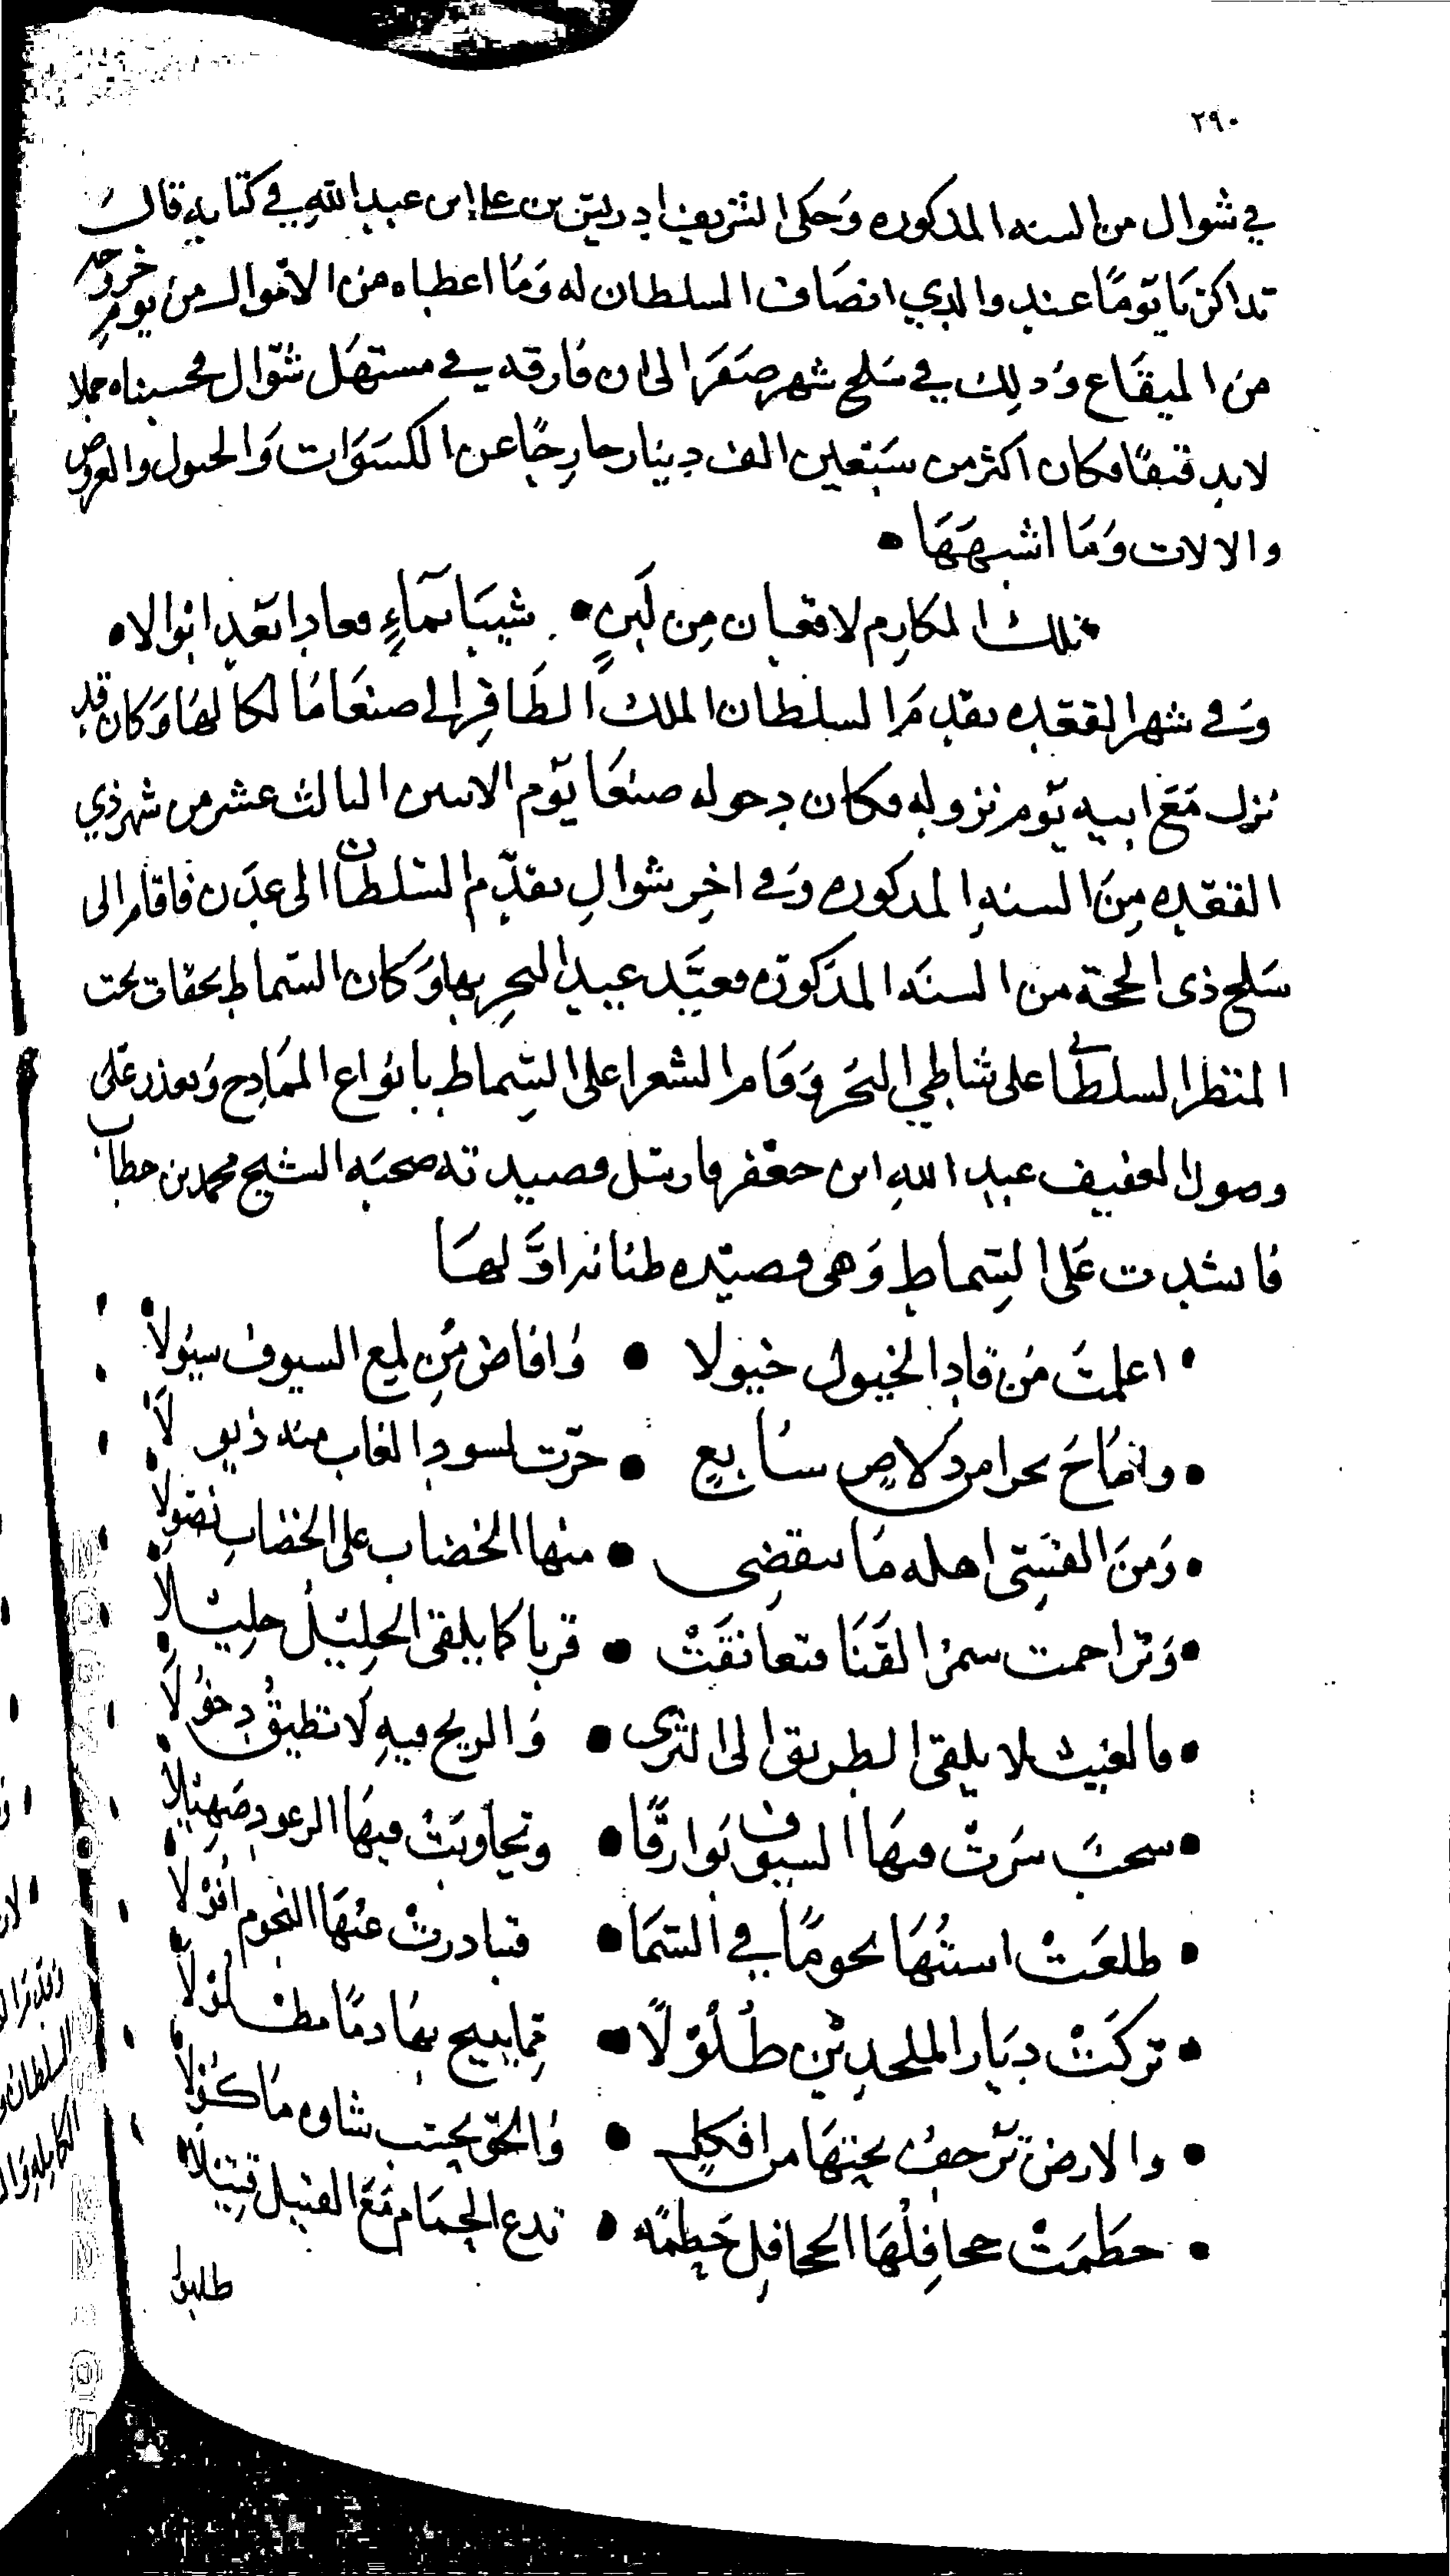 ٢٩٠
في شوال من السنه المذكوره وَحكى الشريف ادريس بن علي ابن عبد الله في كتابه قال
تذاكرنا يومًا عند والدي انصاف السلطان له وَمَا اعطاه من الاموال من يوم خروجه
من الميقاع وذلك في سَلخ شهر صَفَر الى ان فارقه في مستهل شوّال فحسبناه جملا
لا تدقيقًا فكان اكثر من سَبْعين الف دينار خارجًا عن الكسَوَات وَالخيول والعروض
والالات وَمَا اشبهَهَا
تلك المكارم لا قعبان مِن لَبنٍ شيبَا بمآءٍ فعادا بَعْد ابوالا
وَفي شهر القعده تقدمَ السلطان الملك الظافر الى صنعَا مَالكا لهَا وَكان قد
نزل مَعَ ابيه يَوم نزوله فكان دخوله صنعَا يَوْم الاثنين الثالث عشر من شهر ذي
القعده مِنَ السنه المذكوره وَفي اخِر شوالِ تقدّم السّلطان الى عدَن فاقام الى
سَلخ ذى الحجة من السنَه المذكورَه فعيَّد عيد النحرِ بها وَكان السّماط بحقات تحت
المنظر السلطاني على شاطي البَحْر وَقام الشعرا على السّماط بانواع المَمَادح وَتعذر عَلى
وصول العفيف عبد الله ابن جعْفر فارسَل قصيدته صحبَه الشيخ محمد بن خطاب
فانشدت عَلى السّماط وَهى قصيدَه طنانه اوَّلهَا
اعلمتَ مَن قاد الخيول خيولا وَافاض مِن لمع السيوف سيُولاً
وامَاحَ بحرا من دلاصٍ سَابغٍ جرّت لسود الغاب منه ذيولاً
وَمنَ القسِى اهله مَا تنقضى منها الخضاب على الخضابِ نصُولا
وَتزاحمت سمرُ القَنَا فتعانقَتْ قربا كما يلقى الخليلُ خليلا
فالغيث لا يلقى الطريق الى الثرى وَالريح فيهِ لا تطيقُ دخوُلا
سحبَ سَرَتْ فيهَا السيوف بَوارقًا وتجاوبَتْ فيهَا الرعود صَهيْلاً
طلعَتْ اسنتُهَا نجومًا في السّمَا فتبادرتْ عنْهَا النجوم افُوْلا
تركَتْ ديَار الملحديْن طُلُوْلًا مما يبيح بهَا دمًا مطلُوْلاً
والارض تَرْجفُ تحتهَا من افكلٍ وَالجوّ يحسَب شلوه مَاكُوْلا
حطَمَتْ جحافِلُهَا الجحافِل حَطمَةً تدع الحِمَام مَعَ القتيل قتيْلا
طلبوا